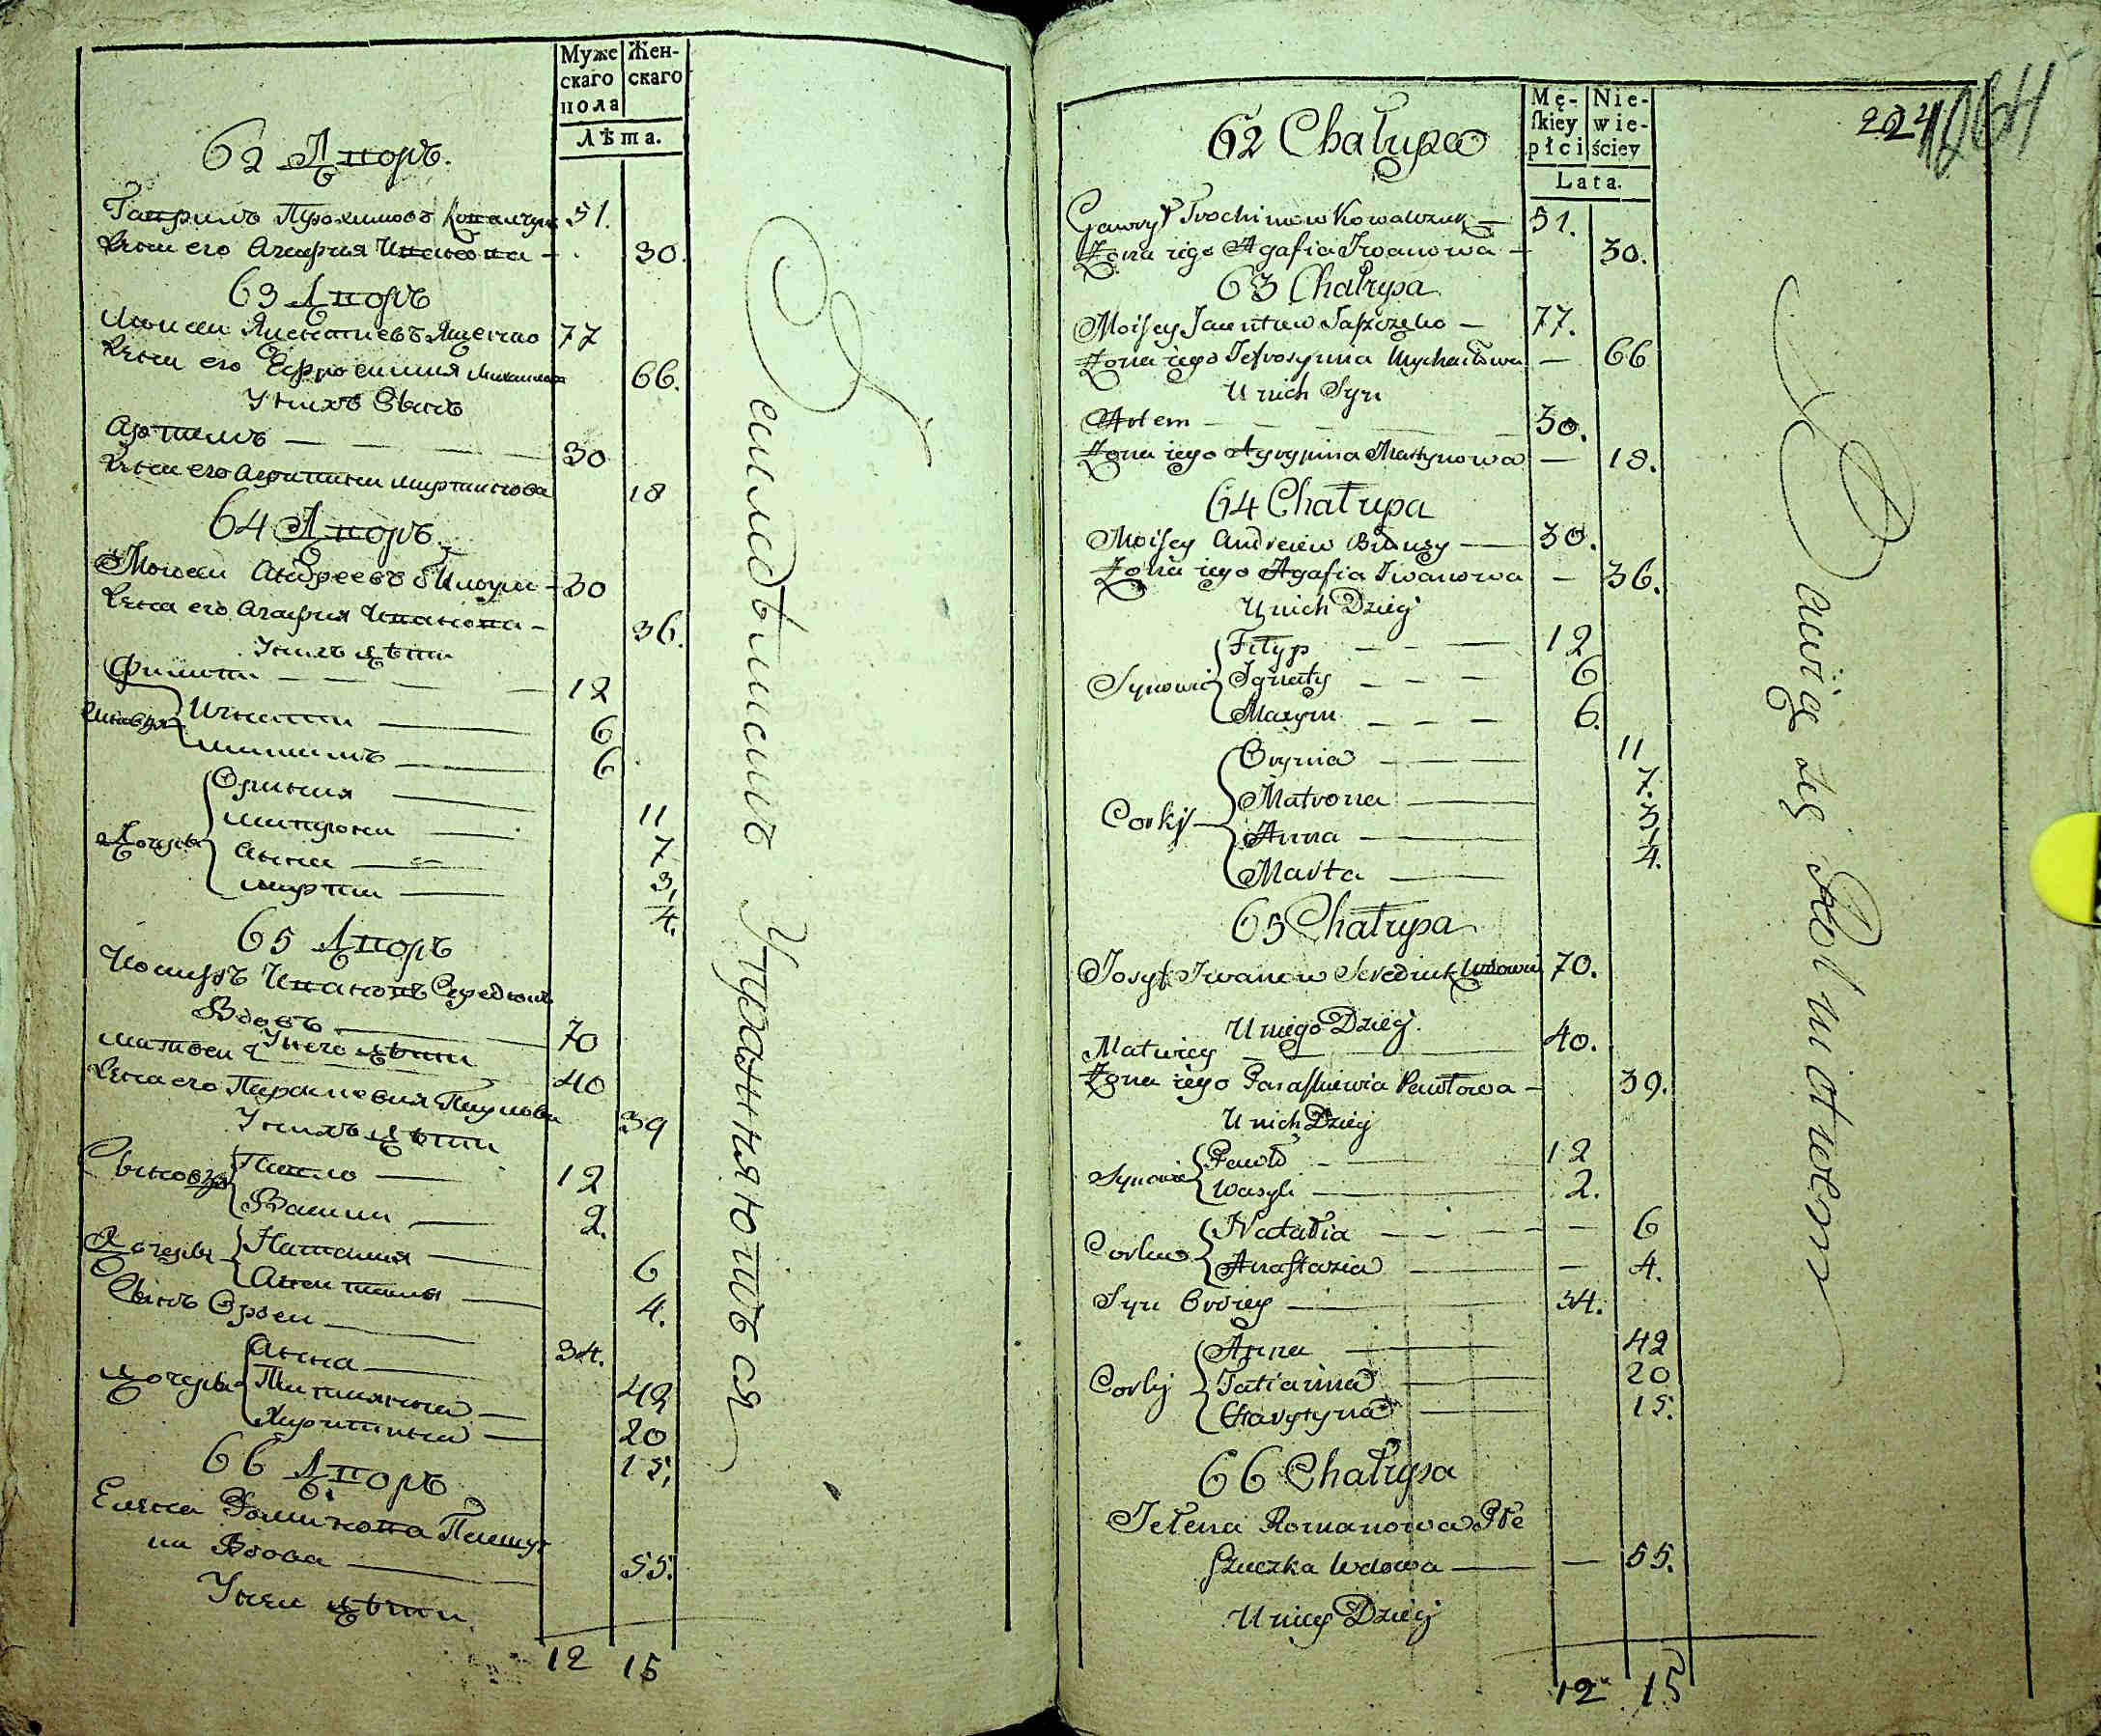 Муже Жен-
скаго скаго
пола
Лѣта.
62 Дворъ.
Гаврилъ Трохимовъ Ковалчукъ 51.
Жена его Агафия Иванова 30.
63 Дворъ
Моисеи 77
Жена его Ефросиния Михаилова 66.
У нихъ Сынъ
Артемъ — 30
Жена его Агрипина Мартинова 18
64 Дворъ
Моисеи Андреевъ 30
Жена его Агафия Иванова - 36.
У нихъ дѣти
Филипъ — 12
Сыновья Игнатии — 6
Максимъ — 6
Ориния — 11
Матрона — 7
Дочери Анна — 3
Марта — 4.
65 Дворъ
Иосифъ Ивановъ Середюкъ
Вдовъ — 70
У него дѣти
Матвеи 40
Жена его Параскевия Павлова 39
У нихъ дѣти
Сыновья Павло — 12
Васили — 2.
Дочери Наталия — 6
Анастасия — 4.
Сынъ Ордеи — 34.
Анна — 42
Дочери Татияна — 20
Харитина — 15,
66 Дворъ
Елена Романова
на Вдова — 55.
У неи дѣти
12 15
Земледѣлиемъ Упражняютъся
Mę- Nie-
ſkiey wie-
płci ściey
Lata.
224
62 Chałupa
Gawrył Trochimow Kowalczuk — 51.
Żona iego Agafia Iwanowa — 30.
63 Chałupa
Moiſey — 77.
Żona iego Jefrosynia Mychaiłowa — 66
U nich Syn
Artem — 30.
Żona iego Agrypina Martynowa — 18.
64 Chałupa
Moiſey Andreiew — 30.
Żona iego Agafia Iwanowa — 36.
U nich Dzieci
Fiłyp — 12
Synowie Ignaty — 6
Maxym — 6.
Orynia — 11
Matrona — 7.
Corki Anna — 3,
Marta — 4.
65 Chałupa
Josyf Iwanow Serediuk Wdowiec 70.
U niego Dzieci.
Matwiey — 40.
Żona iego Paraſkiewia Pawłowa — 39.
U nich Dzieci
Synowie Pawło — 12
Wasyli — 2.
Corki Natalia — 6
Anaſtazia — 4.
Syn Ordiey — 34.
Anna — 42
Corki Tatianna — 20
Charytyna — 15.
66 Chałupa
Jełena Romanowa Płe
ſzuczka Wdowa — 55.
U niey Dzieci
12 15
Bawią się Rolnictwem